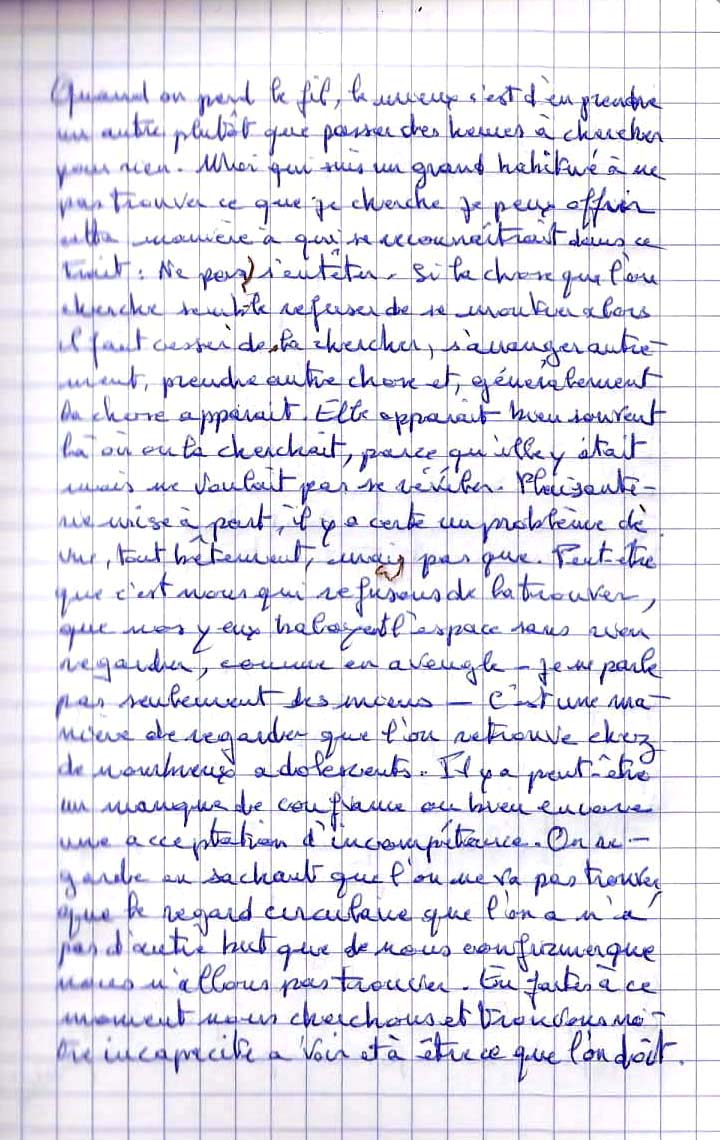 Quand on perd le fil, le mieux c'est d'en prendre
un autre plutôt que passer des heures à chercher
pour rien. Moi qui suis un grand habitué à ne
pas trouver ce que je cherche je peux offrir
cette manière à qui se reconnaîtrait dans ce
trait : Ne pas s'entêter. Si la chose que l'on
cherche semble refuser de se montrer alors
il faut cesser de la chercher, s'arranger autre-
ment, prendre autre chose et, généralement
la chose apparait. Elle apparait bien souvent
là où on la cherchait, parce qu'elle y était
mais ne voulait pas se révéler. Plaisante-
rie mise à part, il y a certe un problème de
vue, tout bêtement, mais pas que. Peut-être
que c'est nous qui refusons de la trouver,
que nos yeux balayent l'espace sans rien
regarder, comme en aveugle - je ne parle
pas seulement des miens - C'est une ma-
nière de regarder que l'on retrouve chez
de nombreux adolescents. Il y a peut-être
un manque de confiance ou bien encore
une acceptation d'incompétence. On re-
garde en sachant que l'on ne va pas trouver,
que le regard circulaire que l'on a n'a
pas d'autre but que de nous confirmer que
nous n'allons pas trouver. En fait à ce
moment nous cherchons et trouvons no-
tre incapacité a voir et à être ce que l'on doit.